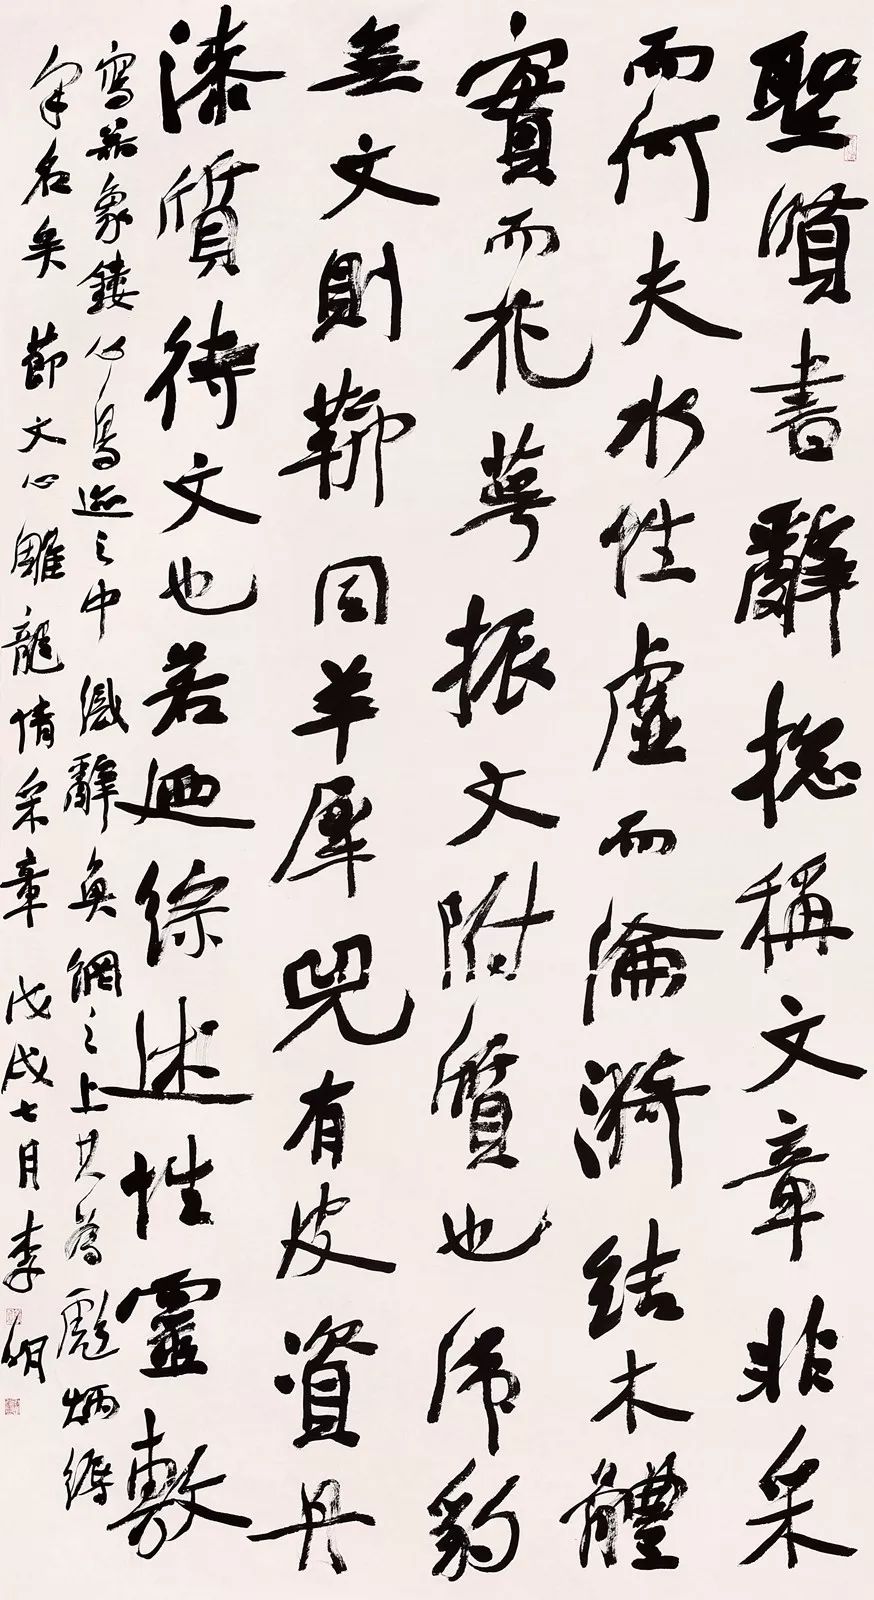 聖賢書辭捴稱文章非采
而何夫水性虛而淪漪結木體
實而花萼振文附質也虎豹
無文則鞹同羊犀兕有皮資丹
漆質待文也若迺綜述性靈敷
寫器象鏤心鳥迹之中織辭魚網之上其為彪炳縟
采名矣 節文心雕龍情采章 戊戌七月李明